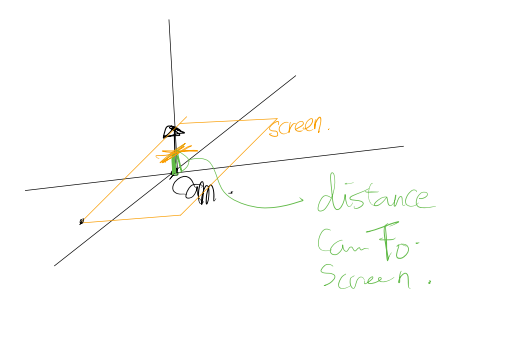 screen.
Cam.
distance
Cam To
Screen.